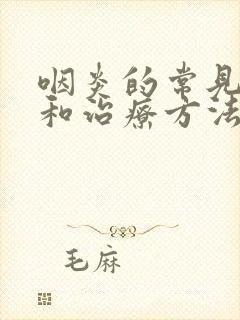 咽炎的常见
和治疗方法
毛麻